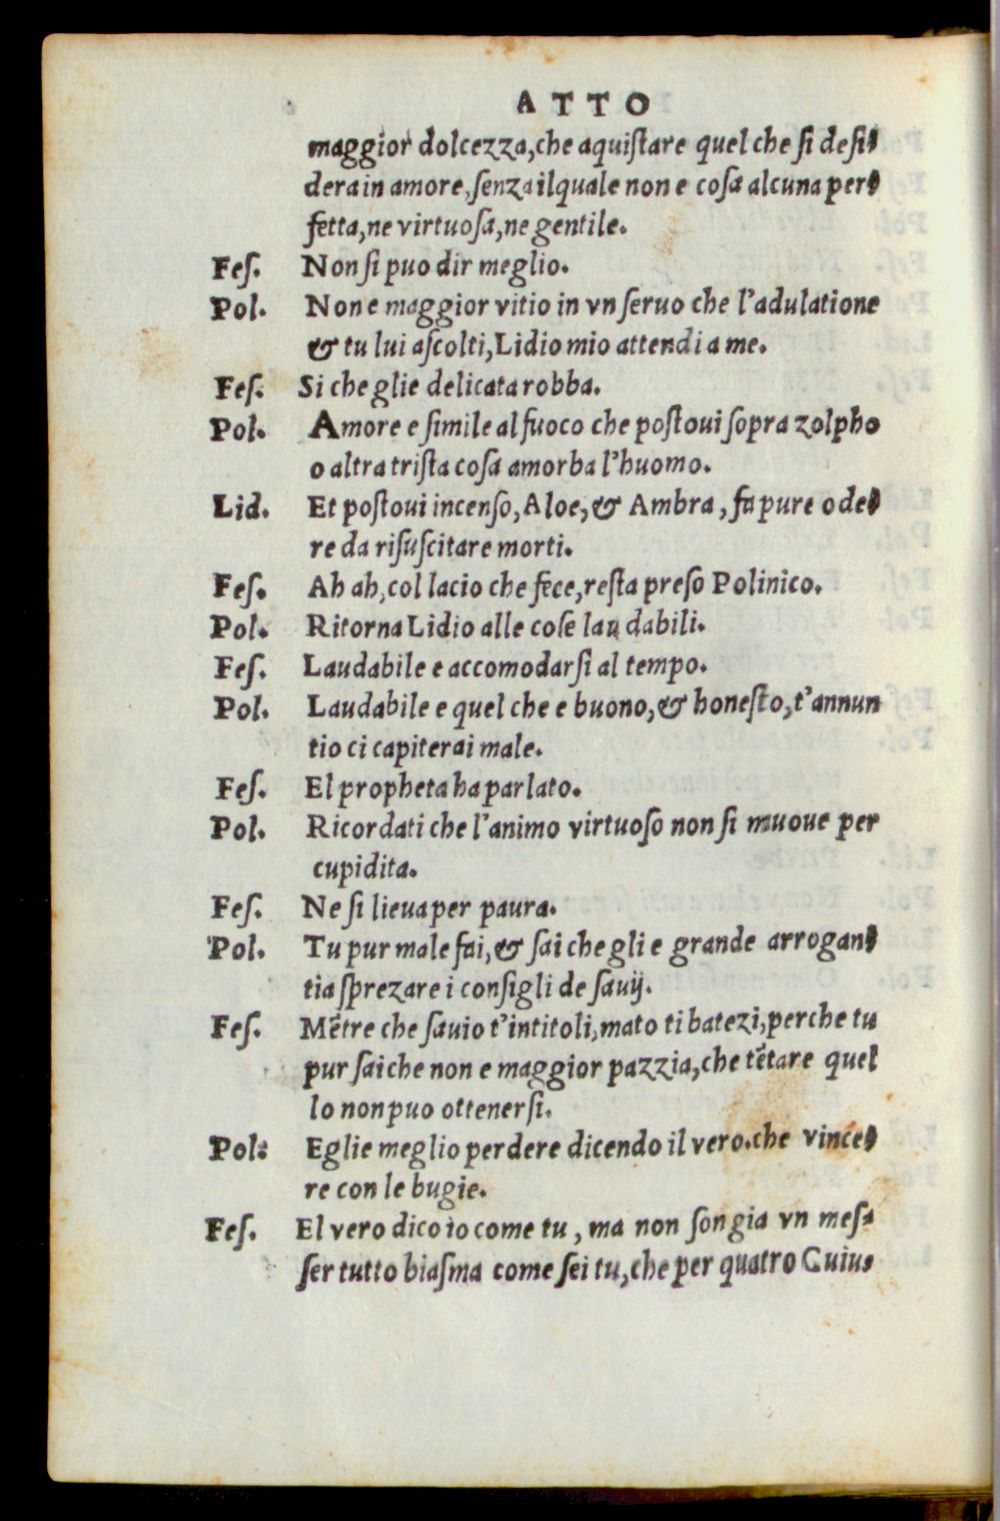 ATTO
maggior dolcezza, che aquiſtare quel che ſi deſi-
dera in amore, ſenza ilquale non e coſa alcuna per-
fetta, ne virtuoſa, ne gentile.
Feſ. Non ſi puo dir meglio.
Pol. Non e maggior vitio in vn ſeruo che l'adulatione
& tu lui aſcolti, Lidio mio attendi a me.
Feſ. Si che glie delicata robba.
Pol. Amore e ſimile al fuoco che poſtoui ſopra zolpho
o altra triſta coſa amorba l'huomo.
Lid. Et poſtoui incenſo, Aloe, & Ambra, fa pure odo-
re da riſuſcitare morti.
Feſ. Ah ah, col lacio che fece, reſta preſo Polinico.
Pol. Ritorna Lidio alle coſe laudabili.
Feſ. Laudabile e accomodarſi al tempo.
Pol. Laudabile e quel che e buono, & honeſto, t'annun
tio ci capiterai male.
Feſ. El propheta ha parlato.
Pol. Ricordati che l'animo virtuoſo non ſi muoue per
cupidita.
Feſ. Ne ſi lieua per paura.
Pol. Tu pur male fai, & ſai che gli e grande arrogan-
tia ſprezare i conſigli de ſauij.
Feſ. Mẽtre che ſauio t'intitoli, mato ti batezi, perche tu
pur ſai che non e maggior pazzia, che tẽtare quel
lo non puo ottenerſi.
Pol. Eglie meglio perdere dicendo il vero. che vince-
re con le bugie.
Feſ. El vero dico io come tu, ma non ſon gia vn meſ-
ſer tutto biaſma come ſei tu, che per quatro Cuius